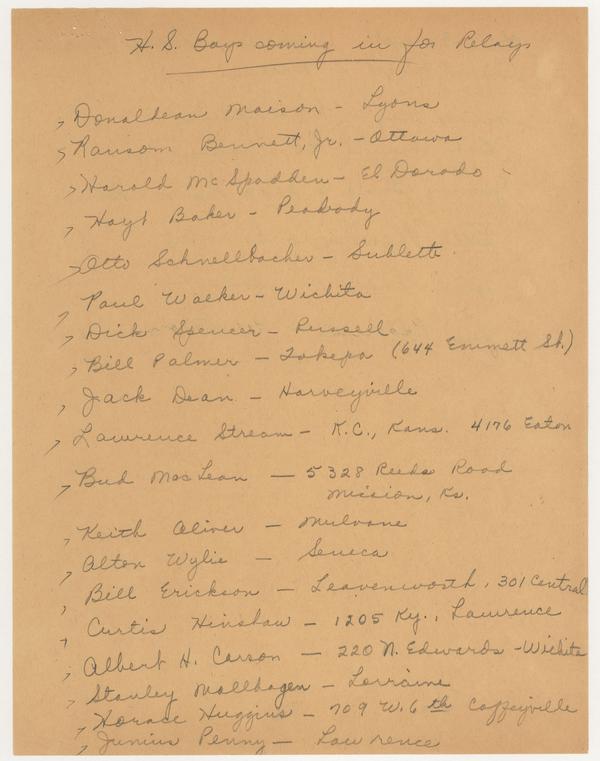 H. S. Boys coming in for Relays
Donaldean Maison - Lyons
Ransom Bennett, Jr. - Ottawa
Harold McSpadden - El Dorado
Hoyt Baker - Peabody
Otto Schnellbacher - Sublette
Paul Walker - Wichita
Dick Spencer - Russell
Bill Palmer - Topeka (644 Emmett St.)
Jack Dean - Harveyville
Lawrence Stream - K.C., Kans. 4176 Eaton
Bud MacLean - 5328 Reeds Road
Mission, Ks.
Keith Oliver - Mulvane
Alton Wylie - Seneca
Bill Erickson - Leavenworth, 301 Central
Curtis Hinshaw - 1205 Ky., Lawrence
Albert H. Carson - 220 N. Edwards - Wichita
Stanley Mollhagen - Lorraine
Horace Huggins - 709 W. 6th Coffeyville
Junius Penny - Lawrence